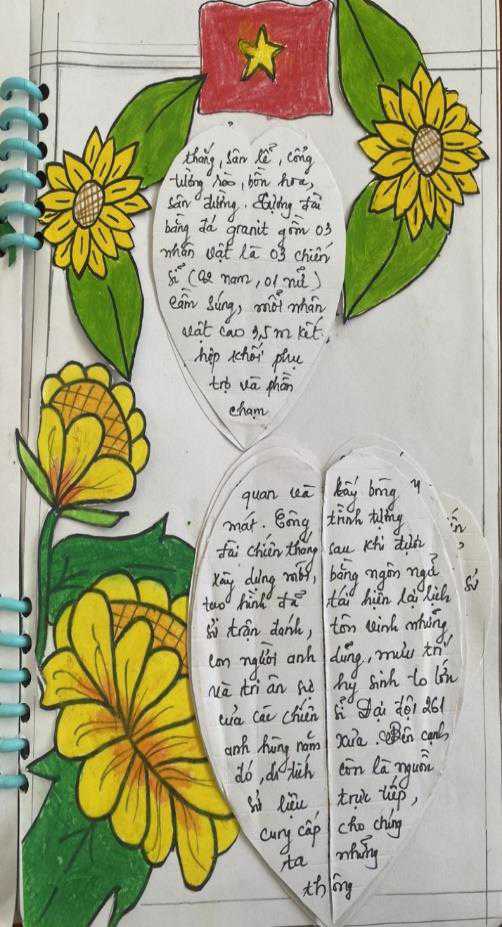 thắng, sân lễ, cổng
tường rào, bồn hoa,
sân đường. Tượng đài
bằng đá granit gồm 03
nhân vật là 03 chiến
sĩ (02 nam, 01 nữ)
cầm súng, mỗi nhân
vật cao 9,5m kết
hợp khối phụ
trợ và phần
chạm
quan và cây bóng
mát. Công trình tượng
đài chiến thắng sau khi được
xây dựng mới, bằng ngôn ngữ
tạo hình đã tái hiện lại lịch
sử trận đánh, tôn vinh những
con người anh dũng, mưu trí
và tri ân sự hy sinh to lớn
của các chiến sĩ Đại đội 261
anh hùng năm xưa. Bên cạnh
đó, di tích còn là nguồn
sử liệu trực tiếp,
cung cấp cho chúng
ta những
thông
sử